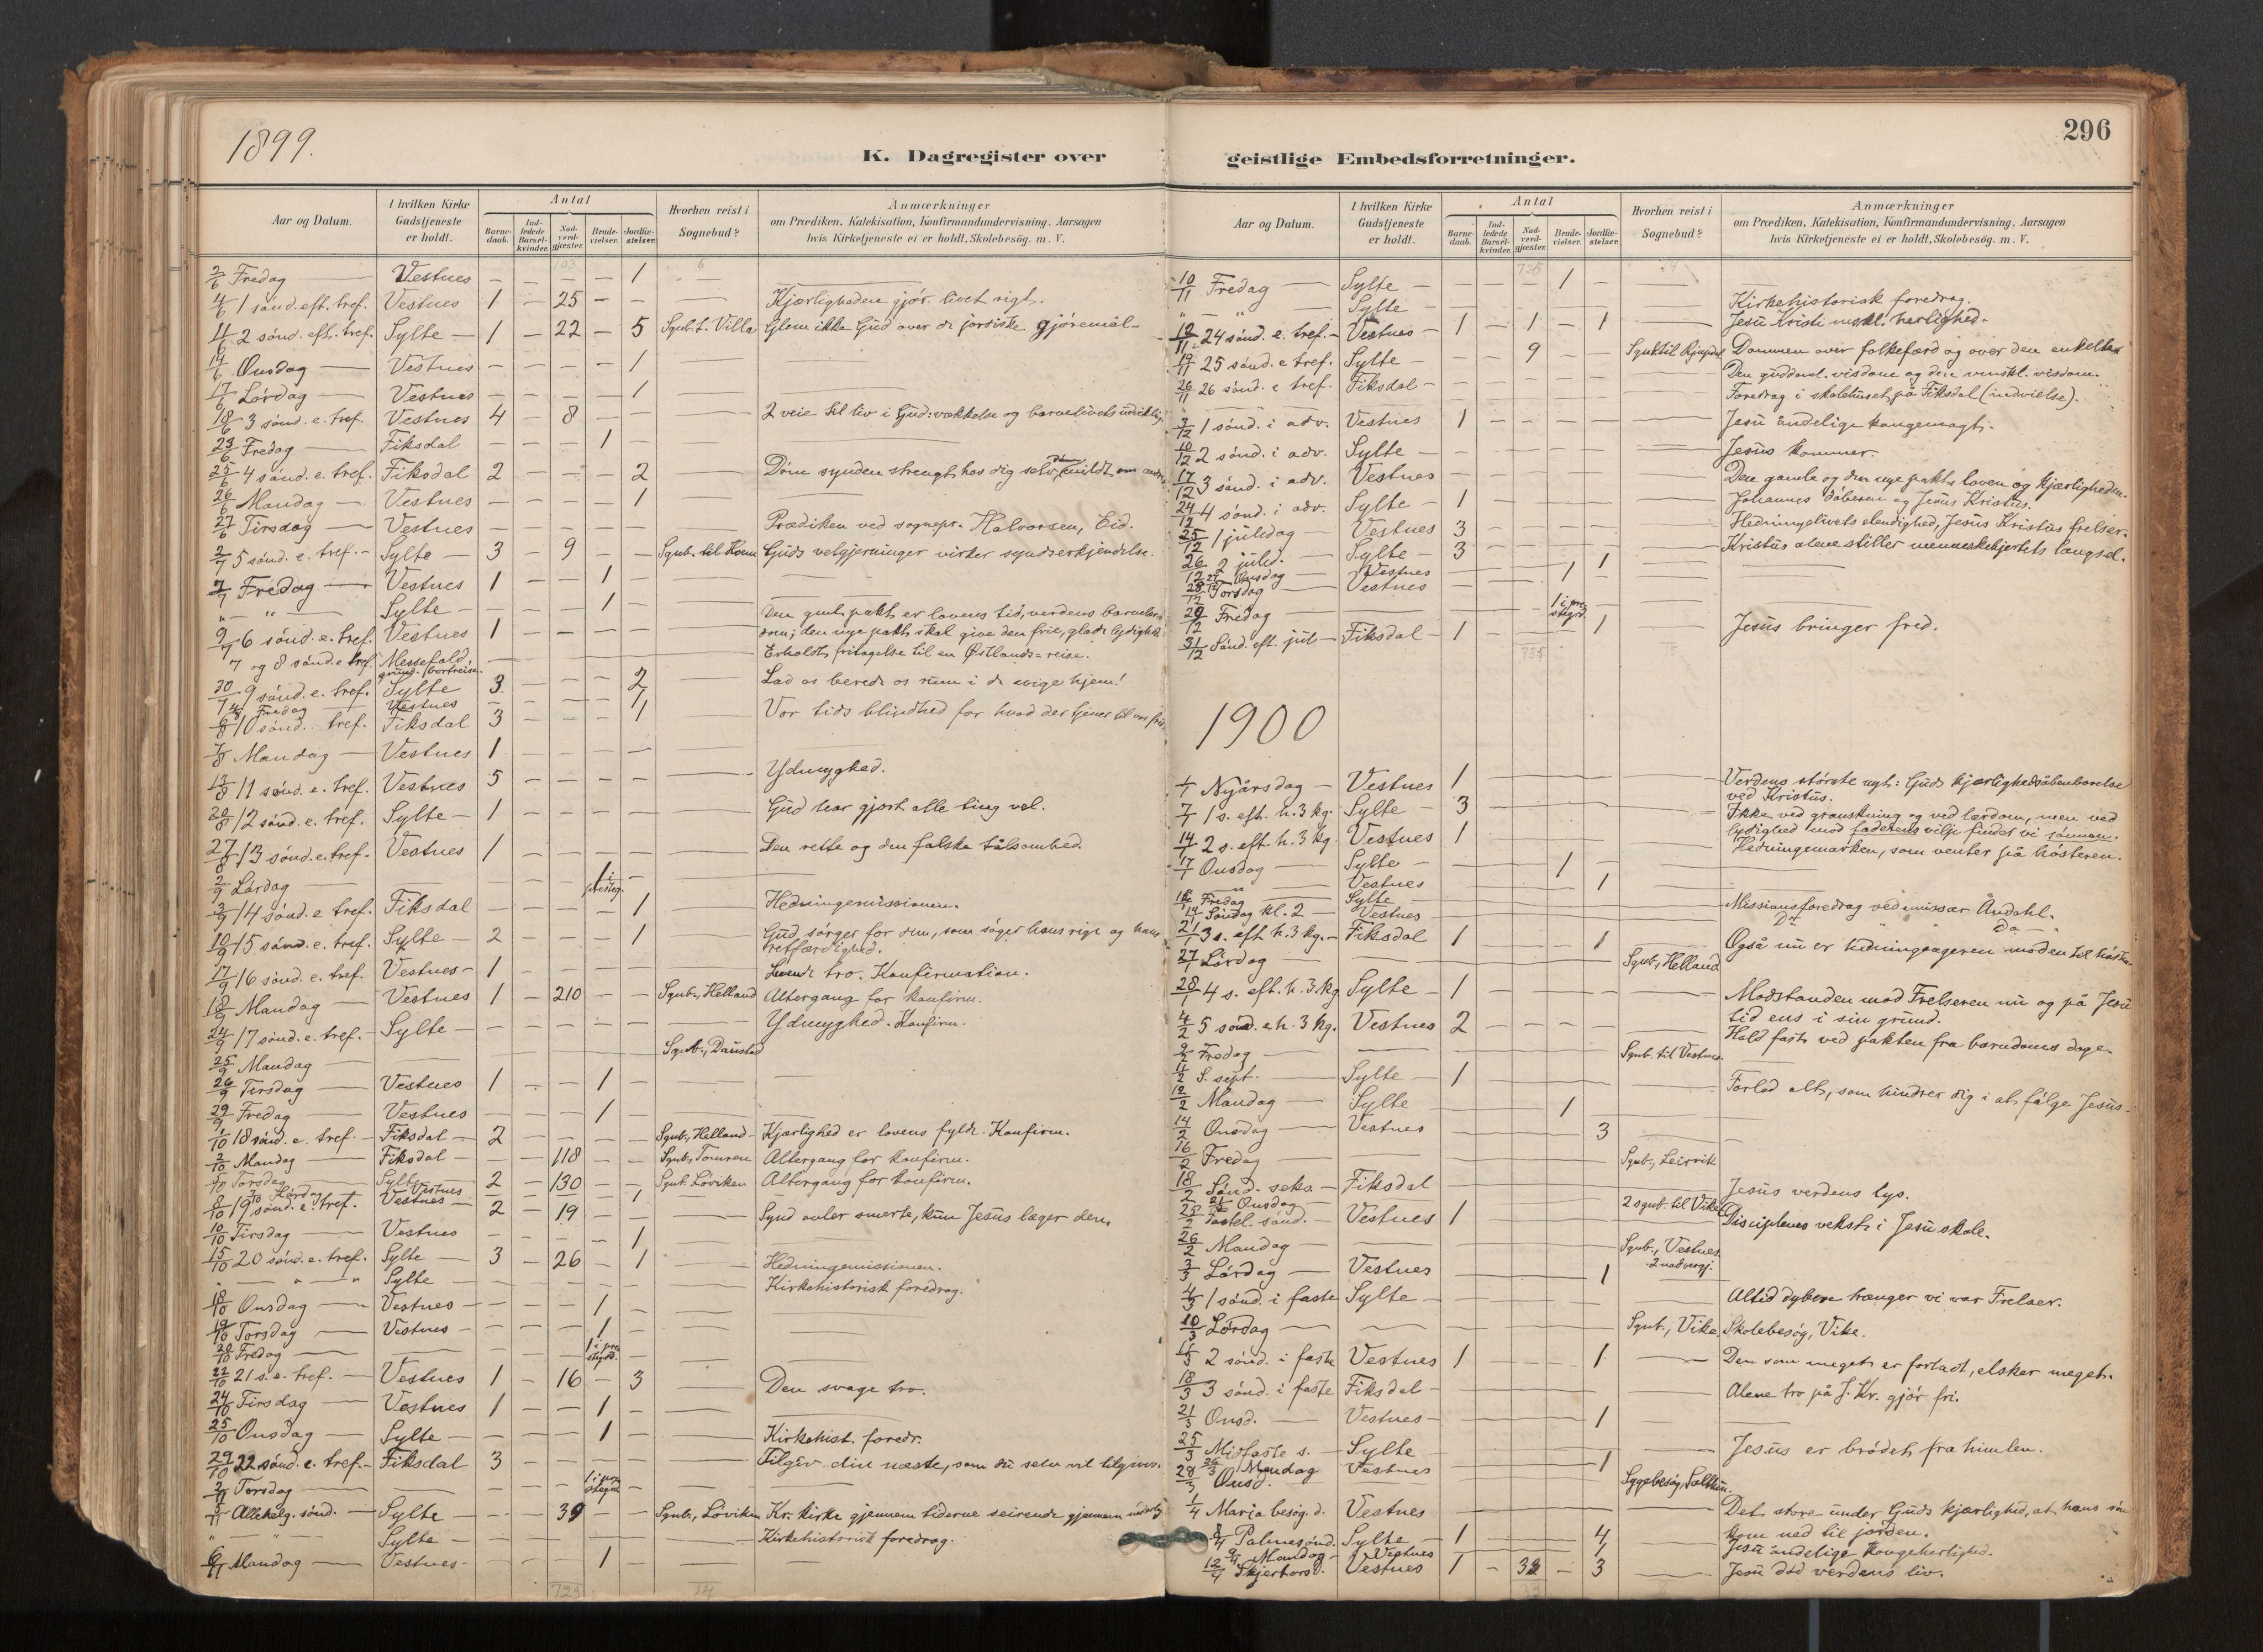 1899.
K. Dagregister over
Aar og Datum. I hvilken Kirke Gudstjeneste er holdt. Antal Barne-daab. Ind-ledede Barsel-kvinder. Nad-verd-gjæster. Brude-vielser. Jordfæ-stelser. Hvorhen reist i Sognebud? Anmærkninger om Prædiken, Katekisation, Konfirmandundervisning, Aarsagen hvis Kirketjeneste ei er holdt, Skolebesög. m. V.
2/6 Fredag — Vestnes — — — — 1
4/6 1 sönd. eft. tref. Vestnes 1 — 25 — — Kjærligheden gjör livet rigt.
11/6 2 sönd. eft. tref. Sylte — 1 — 22 — 5 Sgnb. t. Villa Glem ikke Gud over de jordiske gjöremål
14/6 Onsdag — Vestnes — — — — 1
17/6 Lördag — Vestnes — — — — 1
18/6 3 sönd. e. tref. Vestnes 4 — 8 — — 2 veie til liv i Gud: vækkelse og barnelivets udvikling
23/6 Fredag — Fiksdal — — — 1 —
25/6 4 sönd. e. tref. Fiksdal 2 — — — 2 Döm synden strengt hos dig selv, döm mildt om andre
26/6 Mandag — Vestnes — — — — 1
27/6 Tirsdag — Vestnes Prædiken ved sognepr. Halvorsen, Eid.
2/7 5 sönd. e. tref. — Sylte — 3 — 9 — — Sgnb. til Horn Guds velgjerninger virker syndserkjendelse.
7/7 Fredag — Vestnes 1 — — 1 —
" — " — Sylte — — — — 1 —
9/7 6 sönd. e. tref. Vestnes 1 — — — — Den gml. pakt er lovens tid, verdens barnelær
dom; den nye pakt skal give den frie, glade lydighed.
7 og 8 sönd. e tref. Messefald, grund. bortreise. Erholdt fritagelse til en Østlands-reise.
30/7 9 sönd. e. tref. Sylte 3 — — — 2 Lad os berede os rum i de evige hjem!
4/8 Fredag — Vestnes — — — — 1
6/8 10 sönd. tref. Fiksdal 3 — — — 1 Vor tids blindhed for hvad der tjener til vor fred.
7/8 Mandag — Vestnes 1 — — — —
13/8 11 sönd. e. tref. Vestnes 5 — — — — Ydmyghed.
20/8 12 sönd. e. tref. Sylte — 1 — — — — Gud har gjort alle ting vel.
27/8 13 sönd. e. tref. Vestnes 1 — — — — Den rette og den falske tålsomhed.
2/9 Lördag — — — — 1 i presteg. —
3/9 14 sönd. e tref. Fiksdal — — — — 1 Hedningemissionen.
10/9 15 sönd. e. tref. Sylte — 2 — — — 1 Gud sörger for dem, som söger hans rige og hans
retfærdighed.
17/9 16 sönd. e. tref. Vestnes — 1 — — — — Levende tro. Konfirmation.
18/9 Mandag — Vestnes 1 — 210 — — Sgnb., Helland Altergang for konfirm.
24/9 17 sönd. e. tref. — Sylte — — — — — — Ydmyghed. Konfirm.
25/9 Mandag — — Sgnb., Daustad
26/9 Tirsdag — Vestnes 1 — — 1 —
29/9 Fredag — Vestnes — — — 1 —
1/10 18 sönd. e. tref. — Fiksdal — 2 — — — — Sgnb., Helland — Kjærlighed er lovens fylde. Konfirm.
2/10 Mandag — Fiksdal — — — 118 — — Sgnb., Tomren Altergang for konfirm.
Torsdag — Sylte — 2 — 130 — — Sgnb. Löviken Altergang for konfirm.
7/10 Lördag Vestnes — — — — 1
8/10 19 sönd. e. tref. Vestnes — 2 — 19 — — Synd avler smerte, kun Jesus læger den.
10/10 Tirsdag — Vestnes — — — — 1
15/10 20 sönd. e. tref. Sylte — 3 — 26 — 1 Hedningemissionen.
" — " — " Sylte — Kirkehistorisk foredrag.
18/10 Onsdag — Vestnes — — — — 1 —
19/10 Torsdag — Vestnes — 1 —
20/10 Fredag — — 1 i pre stegrd. —
22/10 21 s. e. tref. — Vestnes 1 — 16 — 3 Den svage tro.
24/10 Tirsdag — Vestnes 1 — — 1 —
25/10 Onsdag — Sylte — — — — 1 — Kirkehist. foredr.
29/10 22 sönd. e. tref. — Fiksdal 3 — — — — Tilgiv din næste, som du selv vil tilgives.
2/11 Torsdag — — 1 i pre stegrd —
5/11 Allehelg. sönd. — Sylte — — 39 — — Sgnb., Löviken Kr. kirke gjennem tiderne seirende gjennem nederlag
" — " — Sylte — Kirkehistorisk foredrag.
6/11 Mandag — Vestnes — — — — 1 —
725 14
296
geistlige Embedsforretninger.
Aar og Datum. I hvilken Kirke Gudstjeneste er holdt. Antal Barne-daab. Ind-ledede Barsel-kvinder. Nad-verd-gjæster. Brude-vielser. Jordfæ-stelser. Hvorhen reist i Sognebud? Anmærkninger om Prædiken, Katekisation, Konfirmandundervisning, Aarsagen hvis Kirketjeneste ei er holdt, Skolebesög. m. V.
10/11 Fredag — Sylte — — — — 1 —
" — " Sylte — Kirkehistorisk foredrag.
12/11 24 sönd. e. tref. — Vestnes — 1 — 1 — 1 Jesu Kristi mskl. herlighed.
19/11 25 sönd. e tref. Sylte — — 9 — — Dommen over folkefærd og over den enkelte
26/11 26 sönd. e tref. Fiksdal — Den guddoml. visdom og den mnskl. visdom.
Foredrag i skolehuset på Fiksdal (indvielse).
3/12 1 sönd. i adv. Vestnes 1 — — — — Jesu åndelige kongemagt.
10/12 2 sönd. i adv. Sylte — Jesus kommer.
17/12 3 sönd. i adv. Vestnes Den gamle og den nye pakt, loven og kjærligheden.
24/12 4 sönd. i adv. Sylte — 1 Johannes döberen og Jesus Kristus.
25/12 1 juledag — Vestnes 3 Hedningelivets elendighed, Jesus Kristus frelser.
26/12 2 juled. — Sylte — 3 — — — 1 Kristus alene stiller menneskehjertets længsel.
27/12 Onsdag — Vestnes — 1 —
28/12 Torsdag — Vestnes
29/12 Fredag — 1 i pre stegrd.
31/12 Sönd. eft. jul — Fiksdal — 1 — — — 1 Jesus bringer fred.
735 15
1900
1/1 Nyårsdag — Vestnes 1 Verdens störste nyt: Guds kjærlighedsåbenbarelse
ved Kristus.
7/1 1 s. eft. h. 3 kg. Sylte — 3 Ikke ved granskning og ved lærdom, men ved
lydighed mod faderens vilje finder vi sönnen.
14/1 2 s. eft. h. 3 kg. Vestnes 1 Hedningemarken, som venter på hösteren.
17/1 Onsdag — Sylte — 1 —
" — Vestnes 1
Fredag — Sylte — Missionsforedrag ved emissær Åndahl.
14/1 Söndag kl. 2 — Vestnes Do — do — "
21/1 3 s. eft h. 3 kg. — Fiksdal 1 — — — 1 Også nu er hedningeageren moden til höst
27/1 Lördag — Sgnb., Helland
28/1 4 s. eft. h. 3 kg Sylte — 1 Modstanden mod Frelseren nu og på Jesu
tid ens i sin grund.
4/2 5 sönd. e h. 3 kg. Vestnes 2 Hold fast ved pakten fra barndoms dage.
9/2 Fredag — Sgnb. til Vestnes.
11/2 S. sept. — Sylte — 1 Forlad alt, som hindrer dig i at fölge Jesus.
12/2 Mandag — Sylte — 1
14/2 Onsdag — Vestnes 3
16/2 Fredag — Sgnb., Leirvik
18/2 Sönd. seks. — Fiksdal Jesus verdens lys.
21/2 Onsdag — 2 sgnb. til Vike
25/2 Fastel. sönd. — Vestnes 1 Disciplenes vekst i Jesu skole.
26/2 Mandag — Sgnb., Vestnes. 2 nadvergj.
3/3 Lördag — Vestnes 1
4/3 1 sönd. i faste Sylte — Altid dybere trænger vi vor Frelser.
10/3 Lördag — Sgnb., Vike. Skolebesög, Vike.
11/3 2 sönd. i faste Vestnes 1 — — — 1 Den som meget er forladt, elsker meget.
18/3 3 sönd. i faste Fiksdal — Alene tro på J. Kr. gjör fri.
21/3 Onsd. — Vestnes — 1
25/3 Midfaste s. — Sylte — Jesus er brödet fra himlen.
26/3 Mandag Vestnes 1
28/3 Onsd. — Sygebesög,
1/4 Maria besög. d. Vestnes Det store under Guds kjærlighed, at hans sön
kom ned til jorden.
8/4 Palmesönd. Sylte — 1 — — — 4 Jesu åndelige kongeherlighed.
9/4 Mandag — Vestnes 1
12/4 Skjertorsd. Vestnes 1 — 32 — 3 Jesu död verdens liv.